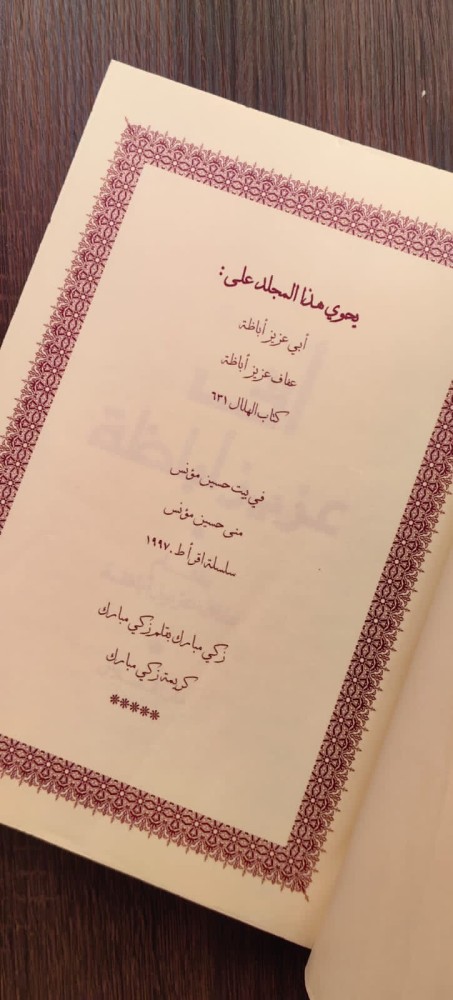 يحوي هذا المجلد على :
أبي عزيز أباظة
عفاف عزيز أباظة
كتاب الهلال ٦٣١
في بيت حسين مؤنس
منى حسين مؤنس
سلسلة اقرأ ط. ١٩٩٧
زكي مبارك بقلم زكي مبارك
كريمة زكي مبارك
*****